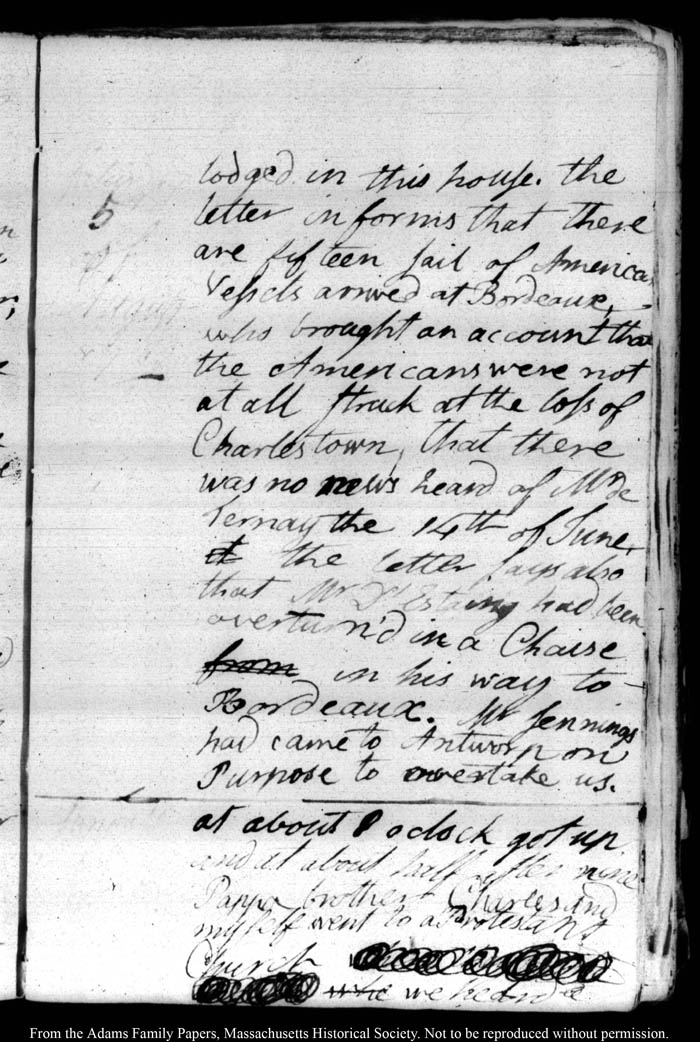 lodged in this house. the
5
letter informs that there
are fifteen sail of America
Vessels arrived at Bordeaux,
who brought an account that
the Americans were not
at all struck at the loss of
Charlestown, that there
was no news heard of Mr. de
Ternay the 14th of June,
it the letter says also
that Mr. D'Estaing had been
overturn'd in a Chaise
from in his way to
Bordeaux. Mr Jennings
had came to Antwerp on
Purpose to overtake us.
at about 8 oclock got up
and at about half after nine
Pappa brother Charles and
myself went to a Protestant
Church
we heard a
From the Adams Family Papers, Massachusetts Historical Society. Not to be reproduced without permission.